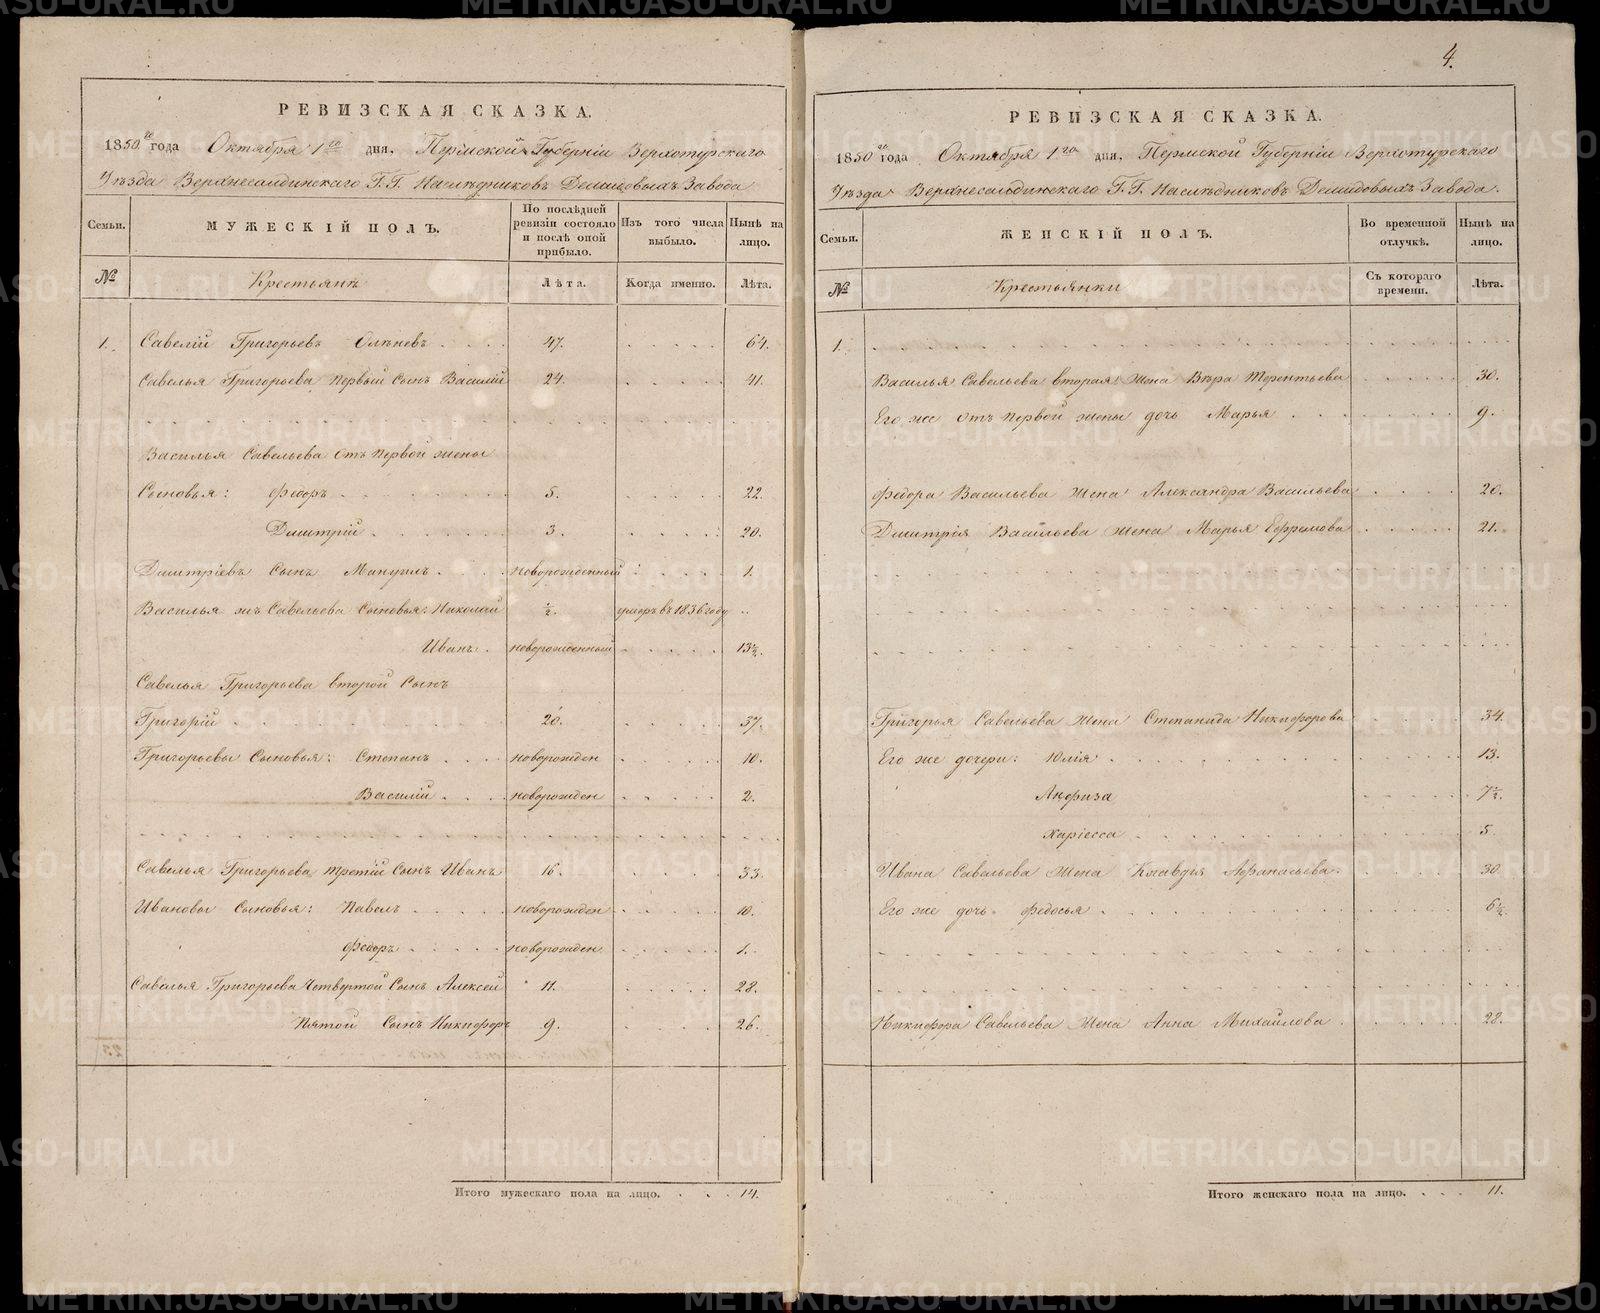 РЕВИЗСКАЯ СКАЗКА.
1850го года Октября 1го дня, Пермской Губерніи Верхотурскаго
Уѣзда Верхнесалдинскаго Г.Г. Наслѣдниковъ Демидовыхъ Завода
Семьи.
МУЖЕСКІЙ ПОЛЪ.
По послѣдней ревизіи состояло и послѣ оной прибыло.
Изъ того числа выбыло.
Нынѣ на лицо.
№
Крестьянъ
Лѣта.
Когда именно.
Лѣта.
1. Савелій Григорьевъ Олѣневъ 47. 64.
Савелья Григорьева первый сынъ Василій 24. 41.
Василья Савельева отъ первой жены
Сыновья: Федоръ 5. 22.
Дмитрій 3. 20.
Дмитріевъ сынъ Мануилъ новорожденный 1.
Василья жъ Савельева сыновья: Николай ½. умеръ въ 1836 году
Иванъ новорожденный 13½.
Савелья Григорьева второй сынъ
Григорій 20. 37.
Григорьевы сыновья: Степанъ новорожден 10.
Василій новорожден 2.
Савелья Григорьева третій сынъ Иванъ 16. 33.
Ивановы сыновья: Павелъ новорожден 10.
Федоръ новорожден 1.
Савелья Григорьева четвертой сынъ Алексей 11. 28.
Пятой сынъ Никифоръ 9. 26.
Итого мужескаго пола на лицо. 14.
4.
РЕВИЗСКАЯ СКАЗКА.
1850го года Октября 1го дня, Пермской Губерніи Верхотурскаго
Уѣзда Верхнесалдинскаго Г.Г. Наслѣдниковъ Демидовыхъ Завода.
Семьи.
ЖЕНСКІЙ ПОЛЪ.
Во временной отлучкѣ.
Нынѣ на лицо.
№
Крестьянки
Съ котораго времени.
Лѣта.
1.
Василья Савельева вторая жена Вѣра Терентьева 30.
Его же отъ первой жены дочь Марья 9.
Федора Васильева жена Александра Васильева 20.
Дмитрія Васильева жена Марья Ефремова 21.
Григорья Савельева жена Степанида Никифорова 34.
Его же дочери: Юлія 13.
Анфиза 7½.
Харіесса 5
Ивана Савельева жена Клавдія Афанасьева. 30
Его же дочь Федосья 6½.
Никифора Савельева жена Анна Михайлова 22.
Итого женскаго пола на лицо. 11.
METRIKI.GASO-URAL.RU